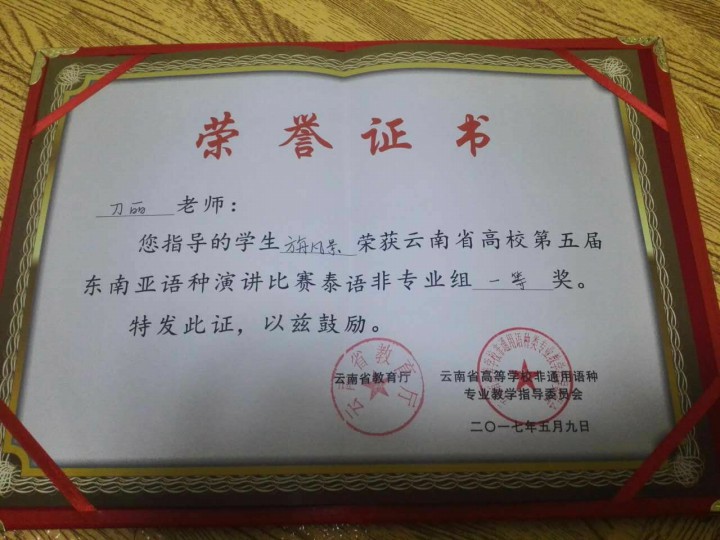 荣誉证书
刀丽 老师：
您指导的学生 荣获云南省高校第五届
东南亚语种演讲比赛泰语非专业组 一等 奖。
特发此证，以兹鼓励。
云南省教育厅
云南省教育厅
云南省高等学校非通用语种
专业教学指导委员会
二〇一七年五月九日